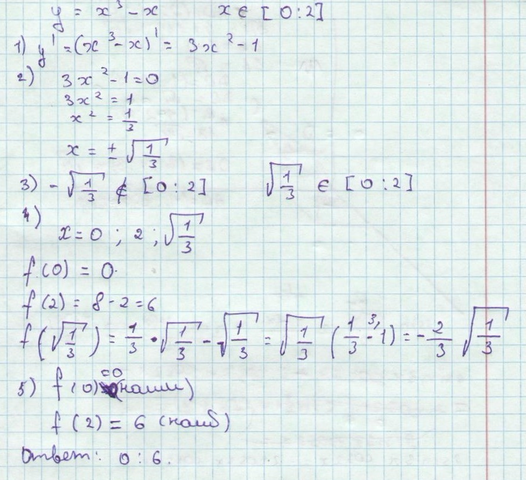 y = x³ - x x ∈ [0 : 2]
1) y' = (x³ - x)' = 3x² - 1
2) 3x² - 1 = 0
3x² = 1
x² = 1/3
x = ± √(1/3)
3) - √(1/3) ∉ [0 : 2] √(1/3) ∈ [0 : 2]
4)
x = 0 ; 2 ; √(1/3)
f(0) = 0.
f(2) = 8 - 2 = 6
f(√(1/3)) = 1/3 · √(1/3) - √(1/3) = √(1/3) (1/3 - 1³) = - 2/3 √(1/3)
5) f(0) =0 (наим)
f(2) = 6 (наиб)
Ответ: 0 : 6.